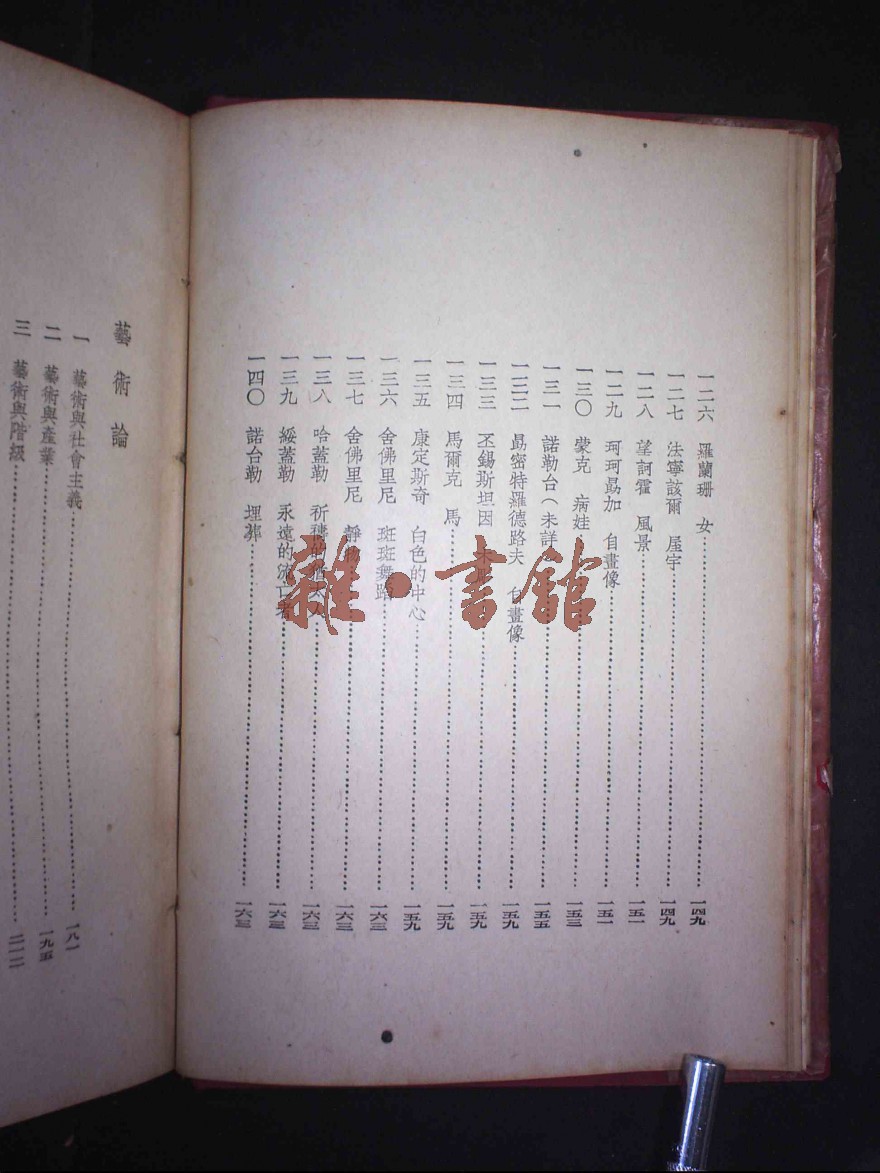 一二六 羅蘭珊 女 一四九
一二七 法寧該爾 屋宇 一四九
一二八 望訶霍 風景 一五一
一二九 珂珂勗加 自畫像 一五一
一三〇 蒙克 病娃 一五三
一三一 諾勒台(未詳 一五五
一三二 勗密特羅德路夫 自畫像 一五九
一三三 丕錫斯坦因 一五九
一三四 馬爾克 馬 一五九
一三五 康定斯奇 白色的中心 一五九
一三六 舍佛里尼 斑斑舞蹈 一六三
一三七 舍佛里尼 靜物 一六三
一三八 哈蓋勒 祈禱的猶太人 一六三
一三九 綏蓋勒 永遠的流亡者 一六三
一四〇 諾台勒 埋葬 一六三
雜·書館
藝術論
一 藝術與社會主義 一八一
二 藝術與產業 一九五
三 藝術與階級 二一二